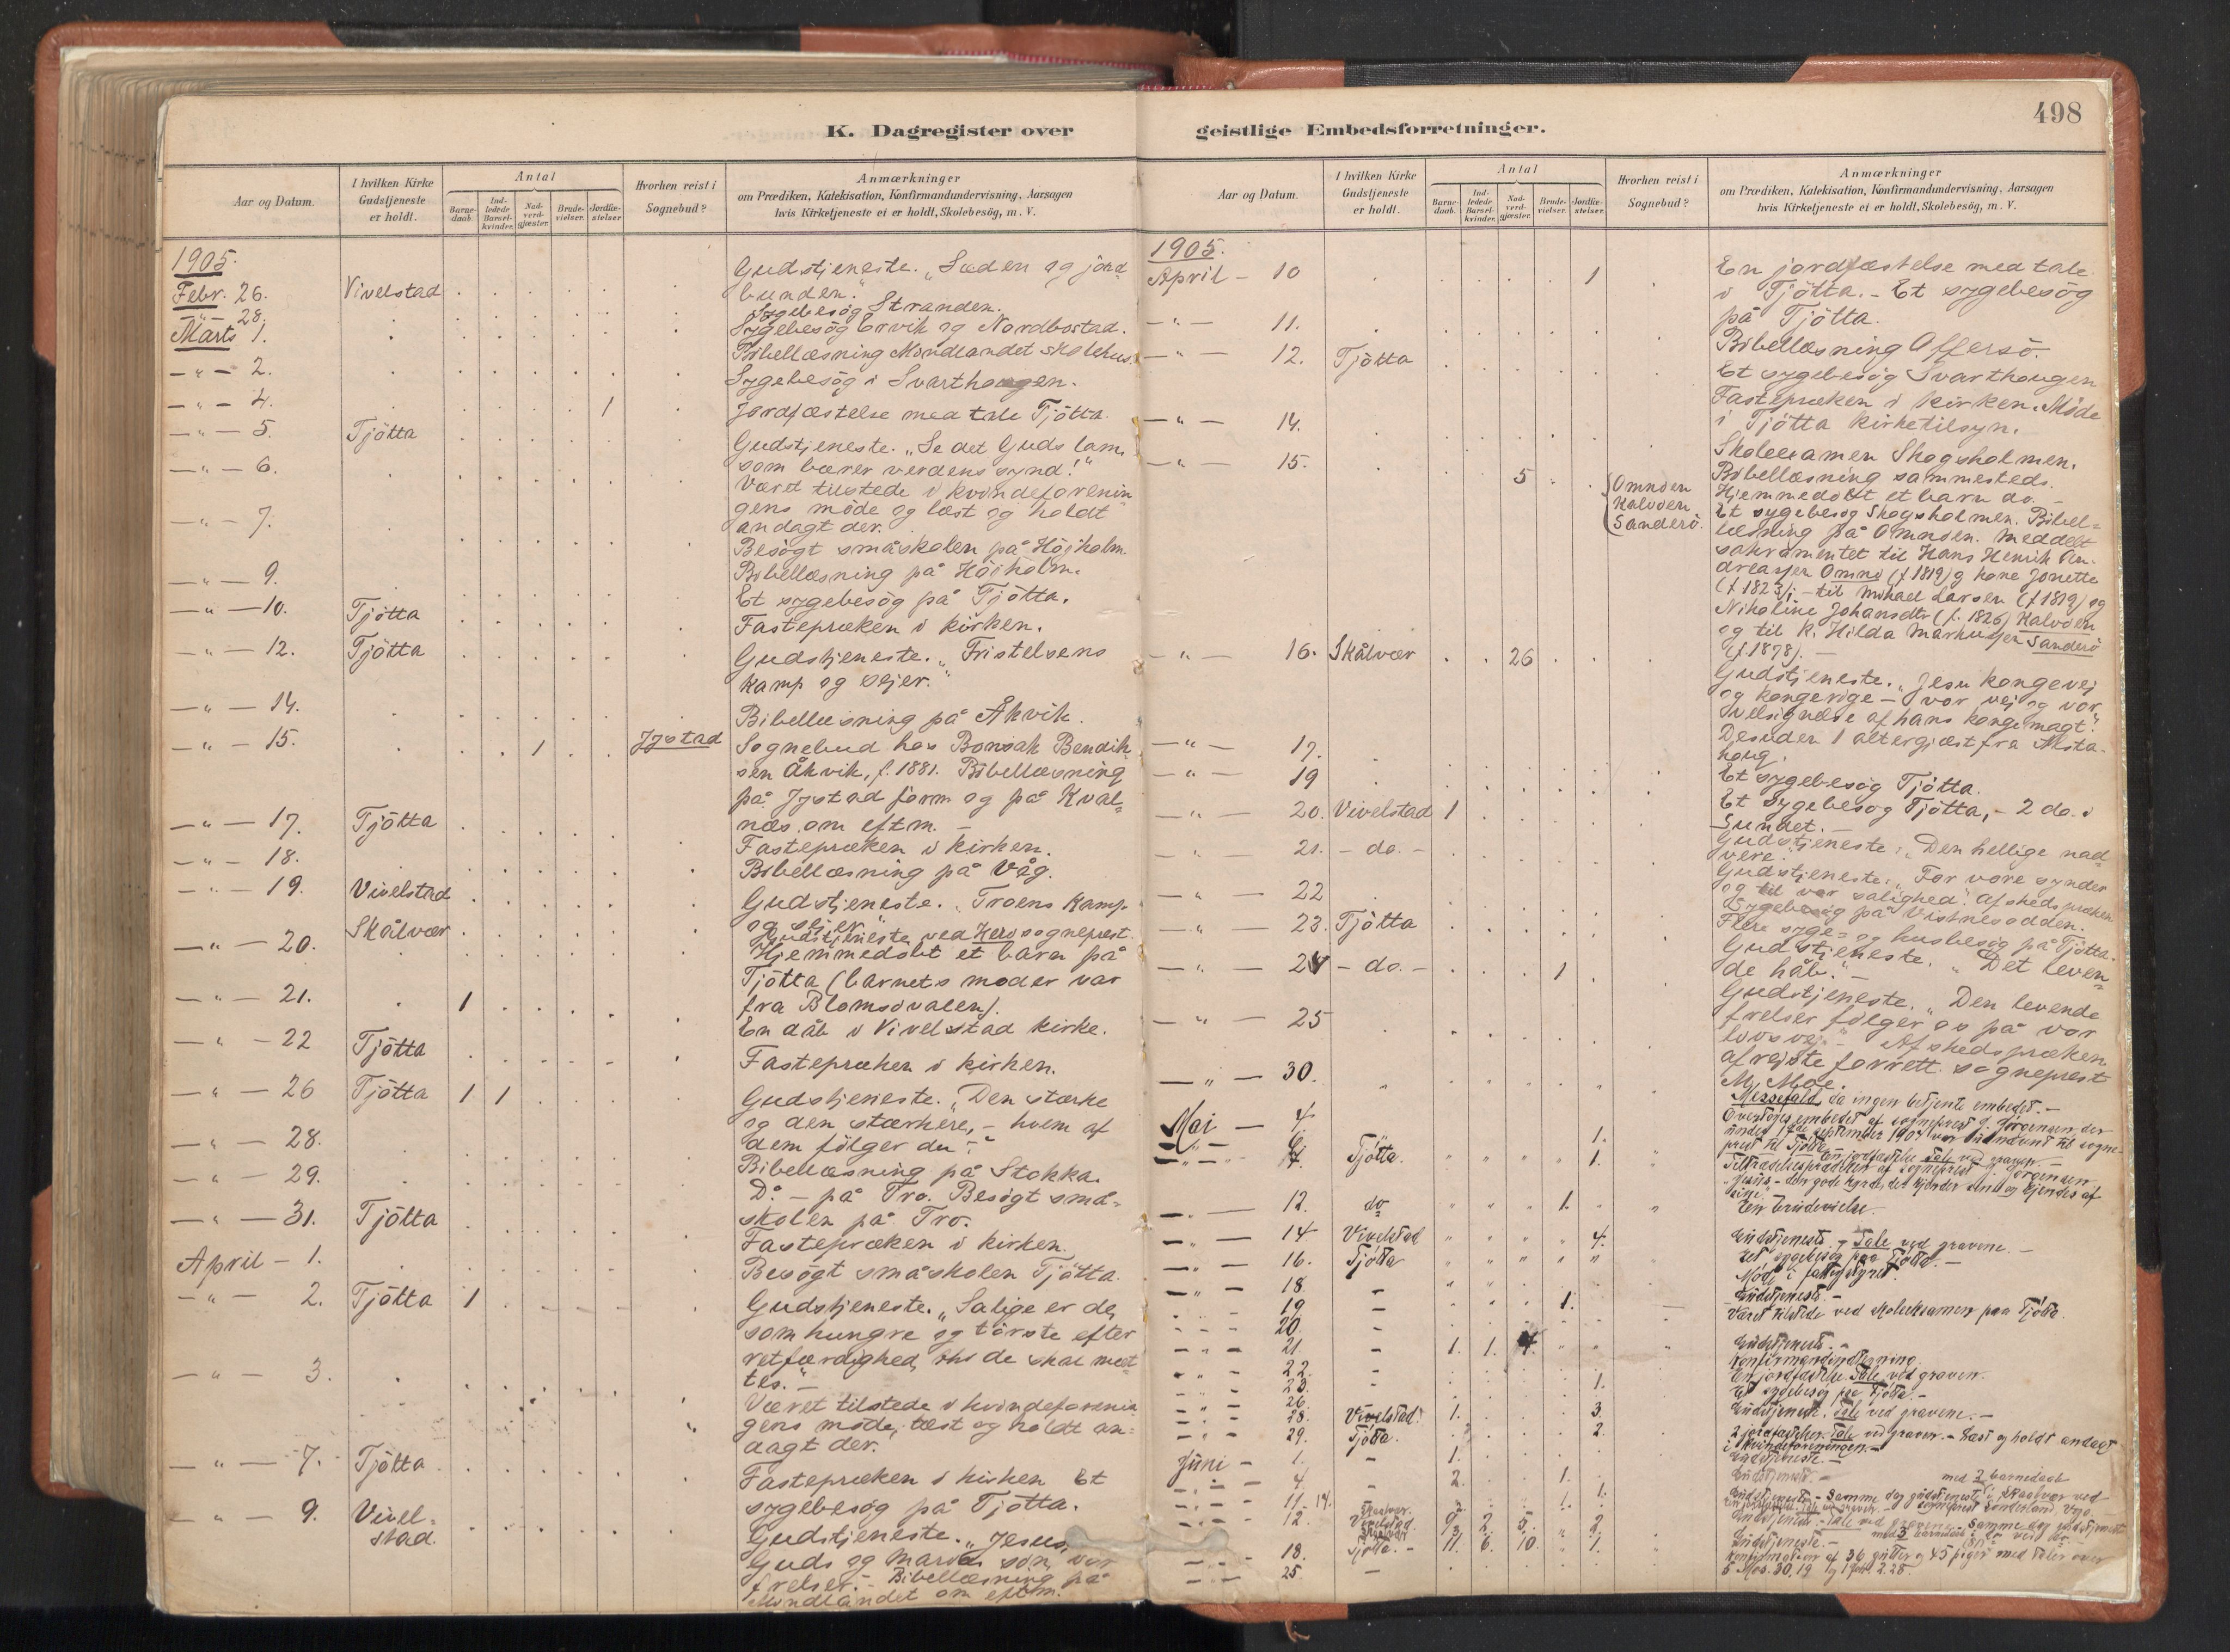 498
K. Dagregister over geistlige Embedsforretninger.
Aar og Datum.
I hvilken Kirke Gudstjeneste er holdt.
Antal
Barne-daab.
Ind-ledede Barsel-kvinder.
Nad-verd-gjæster.
Brude-vielser.
Jordfæ-stelser
Hvorhen reist i Sognebud?
Anmærkninger
om Prædiken, Katekisation, Konfirmandundervisning, Aarsagen
hvis Kirketjeneste ei er holdt, Skolebesög, m. V.
1905.
Febr. 26. Vivelstad Gudstjeneste. "Sæden og jord
bunden."
—"— 28. Sygebesög Stranden.
Marts 1. Sygebesög Ervik og Nordbostad.
Bibellæsning Mindlandet skolehus.
—"— 2. Sygebesög i Svarthougen.
—"— 4. 1 Jordfæstelse med tale Tjötta.
—"— 5. Tjötta Gudstjeneste. "Se det Guds lam,
som bærer verdens synd!"
—"— 6. Været tilstede i kvindeforenin
gens möde og læst og holdt
andagt der.
—"— 7. Besögt småskolen på Höjholm.
Bibellæsning på Höiholm.
—"— 9. Et sygebesög på Tjötta.
—"— 10. Tjötta Fastepræken i kirken.
—"— 12. Tjötta Gudstjeneste. "Fristelsens
kamp og sejer."
—"— 14. Bibellæsning på Åkvik.
—"— 15. 1 Jystad Sognebud hos Bonsak Bendik
sen Åkvik, f. 1881. Bibellæsning
på Jystad form og på Kval=
næs om eftm. —
—"— 17. Tjötta Fastepræken i kirken.
—"— 18. Bibellæsning på Våg.
—"— 19. Vivelstad Gudstjeneste. "Troens kamp
og sejer"
Skålvær Gudstjeneste ved Herö sogneprest.
—"— 20. Hjemmedöbt et barn på
Tjötta (barnets moder var
fra Blomsövalen).
—"— 21. 1 En dåb i Vivelstad kirke.
—"— 22 Tjötta Fastepræken i kirken.
—"— 26 Tjötta 1 1 Gudstjeneste. "Den stærke
og den stærkere, — hvem af
dem fölger du"?
—"— 28. Bibellæsning på Stokka.
—"— 29. Do. — på Tro. Besögt små=
skolen på Tro.
—"— 31. Tjötta Fastepræken i kirken.
April — 1. Besögt småskolen Tjötta.
—"— 2. Tjötta 1 Gudstjeneste. "Salige er de,
som hungre og törste efter
retfærdighed, thi de skal mæt
tes." —
—"— 3. Været tilstede i kvindeforenin
gens möde, læst og holdt an=
dagt der.
—"— 7. Tjötta Fastepræken i kirken Et
sygebesög på Tjötta.
—"— 9. Vivel=
stad. Gudstjeneste. "Jesus,
Guds og Marias sön, vor
frelser." — Bibellæsning på
Mindlandet om eftm.
Aar og Datum.
I hvilken Kirke Gudstjeneste er holdt.
Antal
Barne-daab.
Ind-ledede Barsel-kvinder.
Nad-verd-gjæster.
Brude-vielser.
Jordfæ-stelser.
Hvorhen reist i Sognebud?
Anmærkninger
om Prædiken, Katekisation, Konfirmandundervisning, Aarsagen
hvis Kirketjeneste ei er holdt, Skolebesög, m. V.
1905.
April — 10 1 En jordfæstelse med tale
i Tjötta. — Et sygebesög
på Tjötta.
—"— 11. Bibellæsning Offersö.
—"— 12. Tjötta Et sygebesög Svarthougen
Fastepræken i kirken. Möde
i Tjötta kirketilsyn.
—"— 14. Skoleexamen Skogsholmen.
Bibellæsning sammesteds.
Hjemmedöbt et barn do. —
—"— 15. 5 Omnöen
Kalvöen
Sanderö. Et sygebesög Skogsholmen. Bibel=
læsning på Omnöen. Meddelt
sakramentet til Hans Henrik An=
dreassen Omnö (f 1819) og kone Jonette
(f 1823); — til Mikael Larsen (f 1819) og
Nikoline Johansdtr (f. 1826) Kalvöen
og til K. Hilda Markussen Sanderö
(f. 1878). —
—"— 16. Skålvær 26 Gudstjeneste. "Jesu kongevej
og kongerige — vor vej og vor
velsignelse af hans kongemagt."
Desuden 1 altergjæst fra Alsta-
houg.
—"— 17. Et sygebesög Tjötta.
—"— 19 Et sygebesög Tjötta, — 2 do. i
Sundet. —
—"— 20. Vivelstad 1 Gudstjeneste: "Den hellige nad
vere."
—"— 21. — do. — Gudstjeneste: "For vore synder
og til vor salighed". Afskedspræken
—"— 22 Sygebesög på Vistnesodden.
Flere syge= og husbesög på Tjötta.
—"— 23. Tjötta Gudstjeneste. "Det leven=
de håb." —
—"— 24 — do. — 1 Gudstjeneste. "Den levende
frelser fölger os på vor
livsvej" — Afskedspræken
—"— 25 afrejste forrett. sogneprest
M. Moe.
—"— 30. Messefald, da ingen betjente embedet. —
Mai — 4. 1. Overtoges embedet af sogneprest J. Jörgensen, der
under september 1904 var udnævnt til sogne=
prest til Tjötta. En jordfæstelse Tale ved graven. —
Tjötta. 1. Tiltrædelsesprædiken af sogneprest Jörgensen
"Jesus — den gode hyrde, der kjender sine og kjendes af
sine" —
—"— 12. do 1. En brudevielse.
—"— 14 Vivelstad 4. Gudstjeneste. Tale ved gravene. —
—"— 16. Tjötta Et sygebesög paa Tjötta. —
Möde i fattigstyret.
—"— 18. — Gudstjeneste. —
19 — 1. Været tilstede ved skoleeksamen paa Tjötta.
20. —
21. — 1. 1. Gudstjeneste. —
22. — Konfirmandindskrivning.
23. — 1. En jordfæstelse. Tale ved graven.
26. Et sygebesög paa Tjötta. —
28. Vivelstad. 1. 3. Gudstjeneste. Tale ved gravene. —
29. Tjötta. 2. 2 jordfæstelser. Tale ved graven. — Læst og holdt andagt
i kvindeforeningen. —
Juni — 1. — 1. Gudstjeneste. —
4. — 2. 1. Gudstjeneste. —
med 2 barnedaab
11. Gudstjeneste — Samme dag gudstjeneste i Skaalvær ved
sogneprest
12. Vivelstad. 2. 5. Gudstjeneste — Tale ved graven. Samme dag gudstjeneste
18. Tjötta. — 11. 6. 10. 1. Gudstjeneste. —
25. — Konfirmation af 36 gutter og 45 piger med taler over
5 Mos. 30, 19 og 1 Joh. 2. 28.